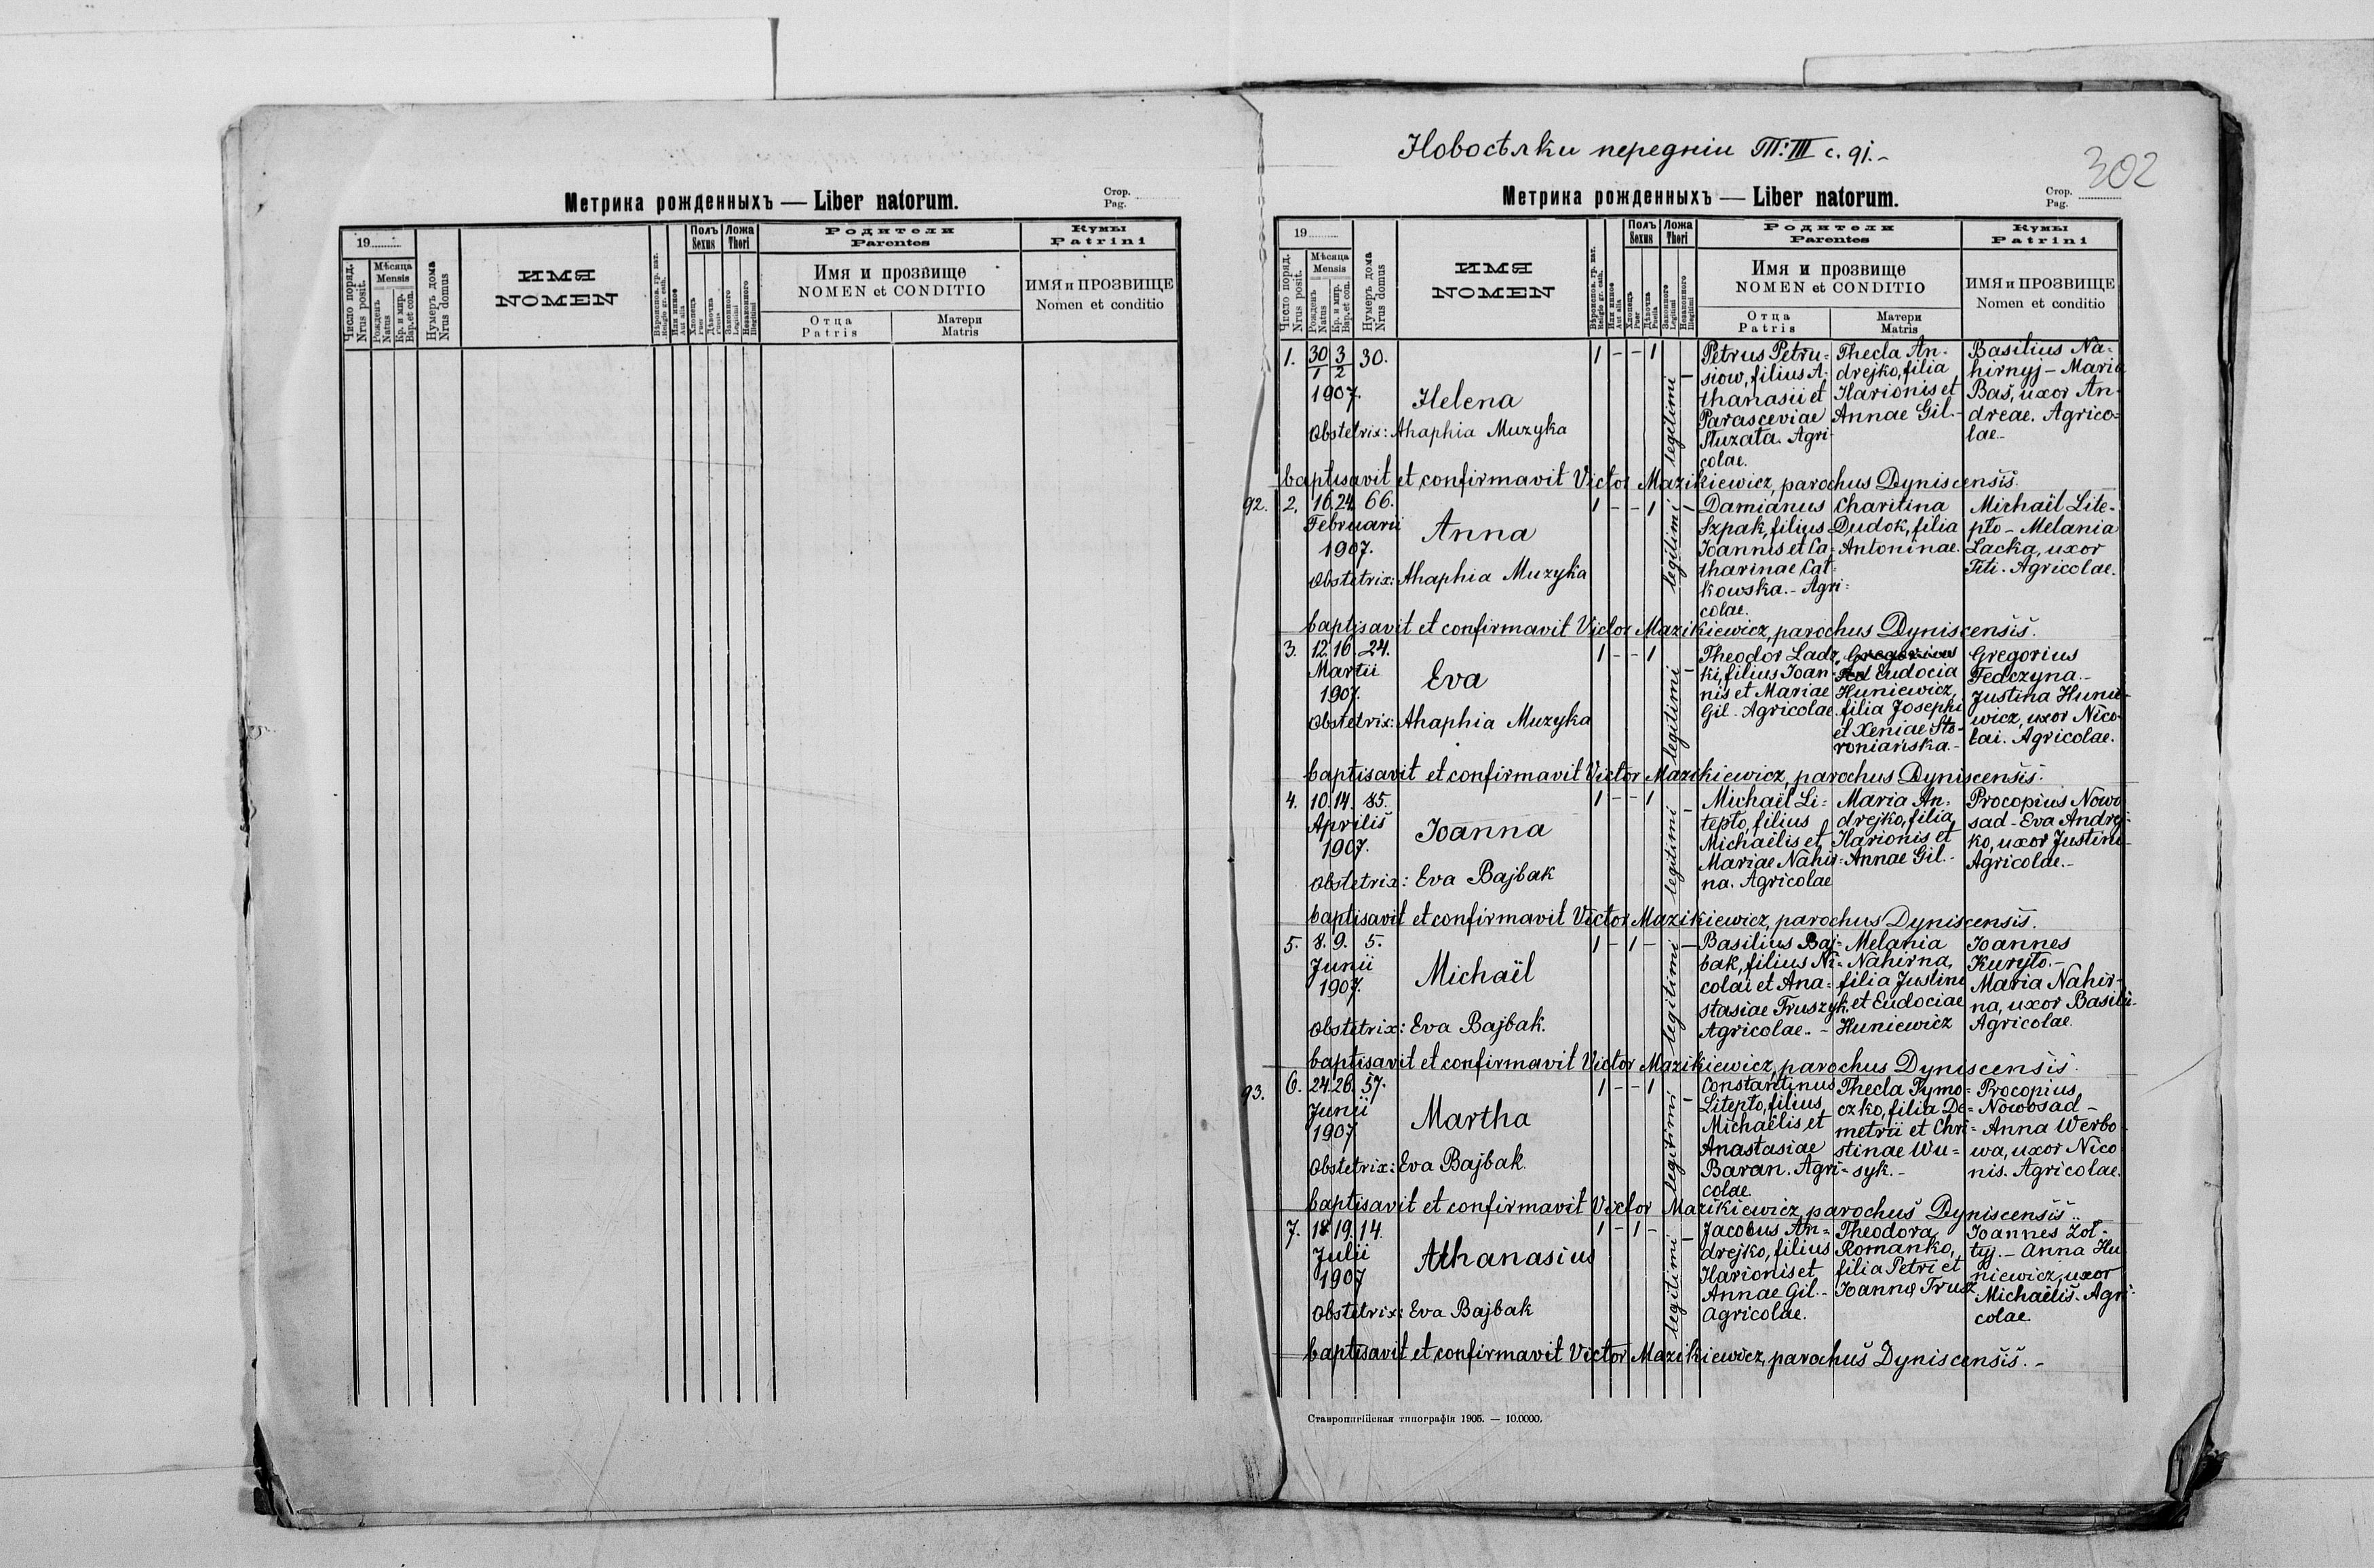 Метрика рожденныхъ — Liber natorum.
Стор.
Pag.
19
Число поряд.
Nrus posit.
Мѣсяца
Mensis
Рожденъ
Natus
Кр. и мир.
Bap. et con.
Нумеръ дома
Nrus domus
ИМЯ
NOMEN
Вѣроиспов. гр. кат.
Religio gr. cath.
Или инное
Aut alia
Полъ
Sexus
Хлопець
Puer
Дѣвочка
Puella
Ложа
Thori
Законного
Legitimi
Незаконного
Illegitimi
Родители
Parentes
Имя и прозвище
NOMEN et CONDITIO
Отца
Patris
Матери
Matris
Кумы
Patrini
ИМЯ и ПРОЗВИЩЕ
Nomen et conditio
Новосѣлки переднiи Т: III с. 91.-
302
Метрика рожденныхъ — Liber natorum.
Стор.
Pag.
19
Число поряд.
Nrus posit.
Мѣсяца
Mensis
Рожденъ
Natus
Кр. и мир.
Bap. et con.
Нумеръ дома
Nrus domus
ИМЯ
NOMEN
Вѣроиспов. гр. кат.
Religio gr. cath.
Или инное
Aut alia
Полъ
Sexus
Хлопець
Puer
Дѣвочка
Puella
Ложа
Thori
Законного
Legitimi
Незаконного
Illegitimi
Родители
Parentes
Имя и прозвище
NOMEN et CONDITIO
Отца
Patris
Матери
Matris
Кумы
Patrini
ИМЯ и ПРОЗВИЩЕ
Nomen et conditio
1. 30/1 3/2 30.
1907.
Helena
Obstetrix: Ahaphia Muzyka
1 - - 1
legitimi
Petrus Petru=
siow, filius A-
thanasii et
Parasceviae
Stuzata. Agri-
colae.
Thecla An-
drejko, filia
Ilarionis et
Annae Gil.-
Basilius Na-
hirnyj - Maria
Baš, uxor An-
dreae. Agrico=
lae.-
baptisavit et confirmavit Victor Mazikiewicz, parochus Dyniscensis.
92. 2. 16. 24. 66.
Februarii
1907.
Anna
Obstetrix: Ahaphia Muzyka
1 - - 1
legitimi
Damianus
Szpak, filius
Ioannis et Ca-
tharinae Cat-
kowska.- Agri=
colae.
Charitina
Dudok, filia
Antoninae.
Michaïl Lite-
pło - Melania
Lacka, uxor
Titi. Agricolae.
baptisavit et confirmavit Victor Mazikiewicz, parochus Dyniscensis.
3. 12. 16. 24.
Martii
1907.
Eva
Obstetrix: Ahaphia Muzyka
1 - - 1
legitimi
Theodor Ladz
ki, filius Ioan-
nis et Mariae
Gil. Agricolae.
Gregorius
Eudocia
Huniewicz,
filia Josephi
et Xeniae Sto-
roniańska.-
Gregorius
Fedczyna.-
Justina Hunie-
wicz, uxor Nico-
lai. Agricolae.
baptisavit et confirmavit Victor Mazikiewicz, parochus Dyniscensis.
4. 10. 14. 85.
Aprilis
1907.
Ioanna
Obstetrix: Eva Bajbak
1 - - 1
legitimi
Michaël Li=
tepło, filius
Michaëlis et
Mariae Nahir=
na. Agricolae
Maria An-
drejko, filia
Ilarionis et
Annae Gil.-
Procopius Nowo
sad - Eva Andrej-
ko, uxor Justini-
Agricolae.-
baptisavit et confirmavit Victor Mazikiewicz, parochus Dyniscensis.
5. 8. 9. 5.
Junii
1907.
Michaïl
Obstetrix: Eva Bajbak.
1 - 1 -
legitimi
Basilius Baj-
bak, filius Ni-
colai et Ana=
stasiae Truszyk.
Agricolae.-
Melania
Nahirna,
filia Justini
et Eudociae
Huniewicz
Ioannes
Kuryło.-
Maria Nahir-
na, uxor Basilii-
Agricolae.
baptisavit et confirmavit Victor Mazikiewicz, parochus Dyniscensis.
93. 6. 24. 26. 57.
Junii
1907
Martha
Obstetrix: Eva Bajbak.
1 - - 1
legitimi
Constantinus
Litepło, filius
Michaëlis et
Anastasiae
Baran. Agri-
colae.
Thecla Tymo=
czko, filia De=
metrii et Chri=
stinae Wu=
syk.-
Procopius
Nowosad -
Anna Werbo-
wa, uxor Nico-
nis. Agricolae.
baptisavit et confirmavit Victor Mazikiewicz, parochus Dyniscensis.
7. 18. 19. 14.
Julii
1907
Athanasius
Obstetrix: Eva Bajbak
1 - 1 -
legitimi
Jacobus An=
drejko, filius
Ilarionis et
Annae Gil.-
Agricolae.
Theodora
Romanko,
filia Petri et
Ioanna Trusz
Ioannes Zoł-
tyj.- Anna Hu
niewicz, uxor
Michaëlis. Agri-
colae.
baptisavit et confirmavit Victor Mazikiewicz, parochus Dyniscensis.-
Ставропигiйская типографiя 1905. — 10.0000.